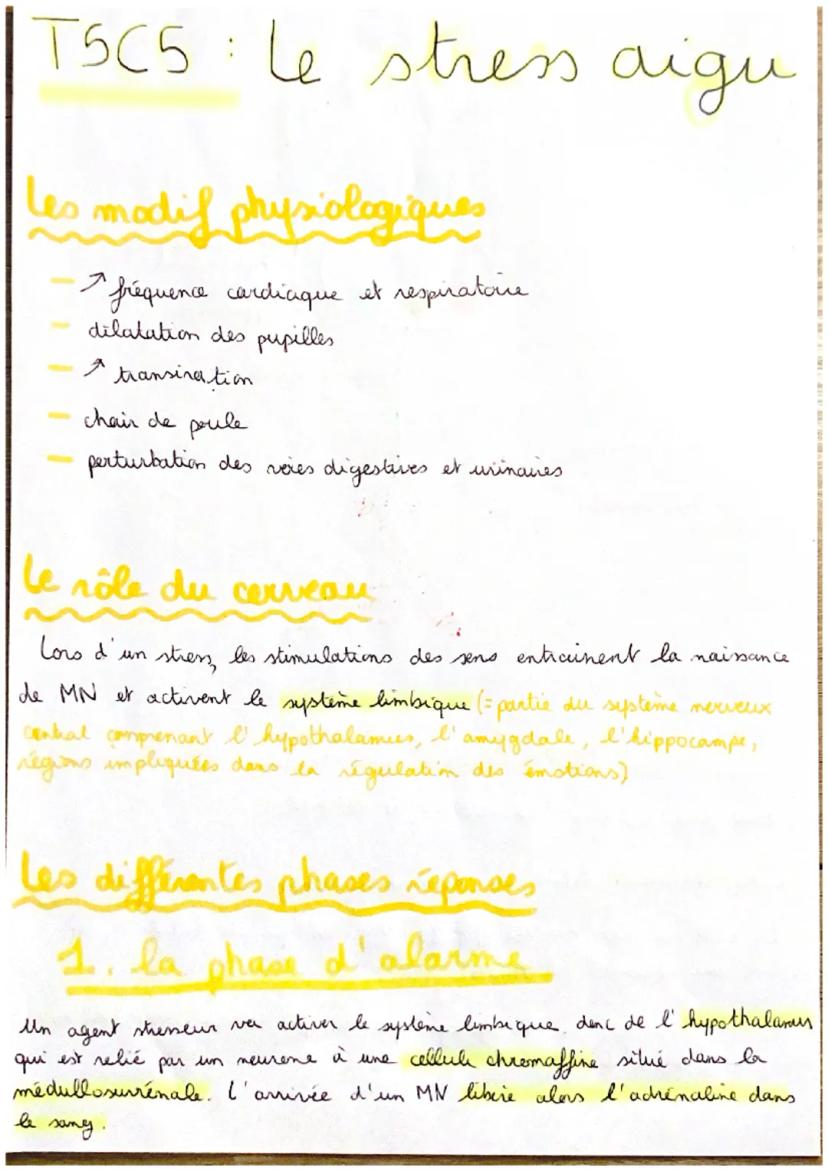 T5C5 : le stress aigu
Les modif physiologiques
- ↗ fréquence cardiaque et respiratoire
- dilatation des pupilles
- ↗ transiration
- chair de poule
- perturbation des voies digestives et urinaires
Le rôle du cerveau
Lors d'un stress, les stimulations des sens entrainent la naissance
de MN et activent le système limbique (= partie du système nerveux
central comprenant l'hypothalamus, l'amygdale, l'hippocampe,
régions impliquées dans la régulation des émotions)
Les différentes phases réponses
1. la phase d'alarme
Un agent stresseur va activer le système limbique donc de l'hypothalamus
qui est relié par un neurone à une cellule chromaffine situé dans la
médullosurrénale. L'arrivée d'un MN libère alors l'adrénaline dans
le sang.